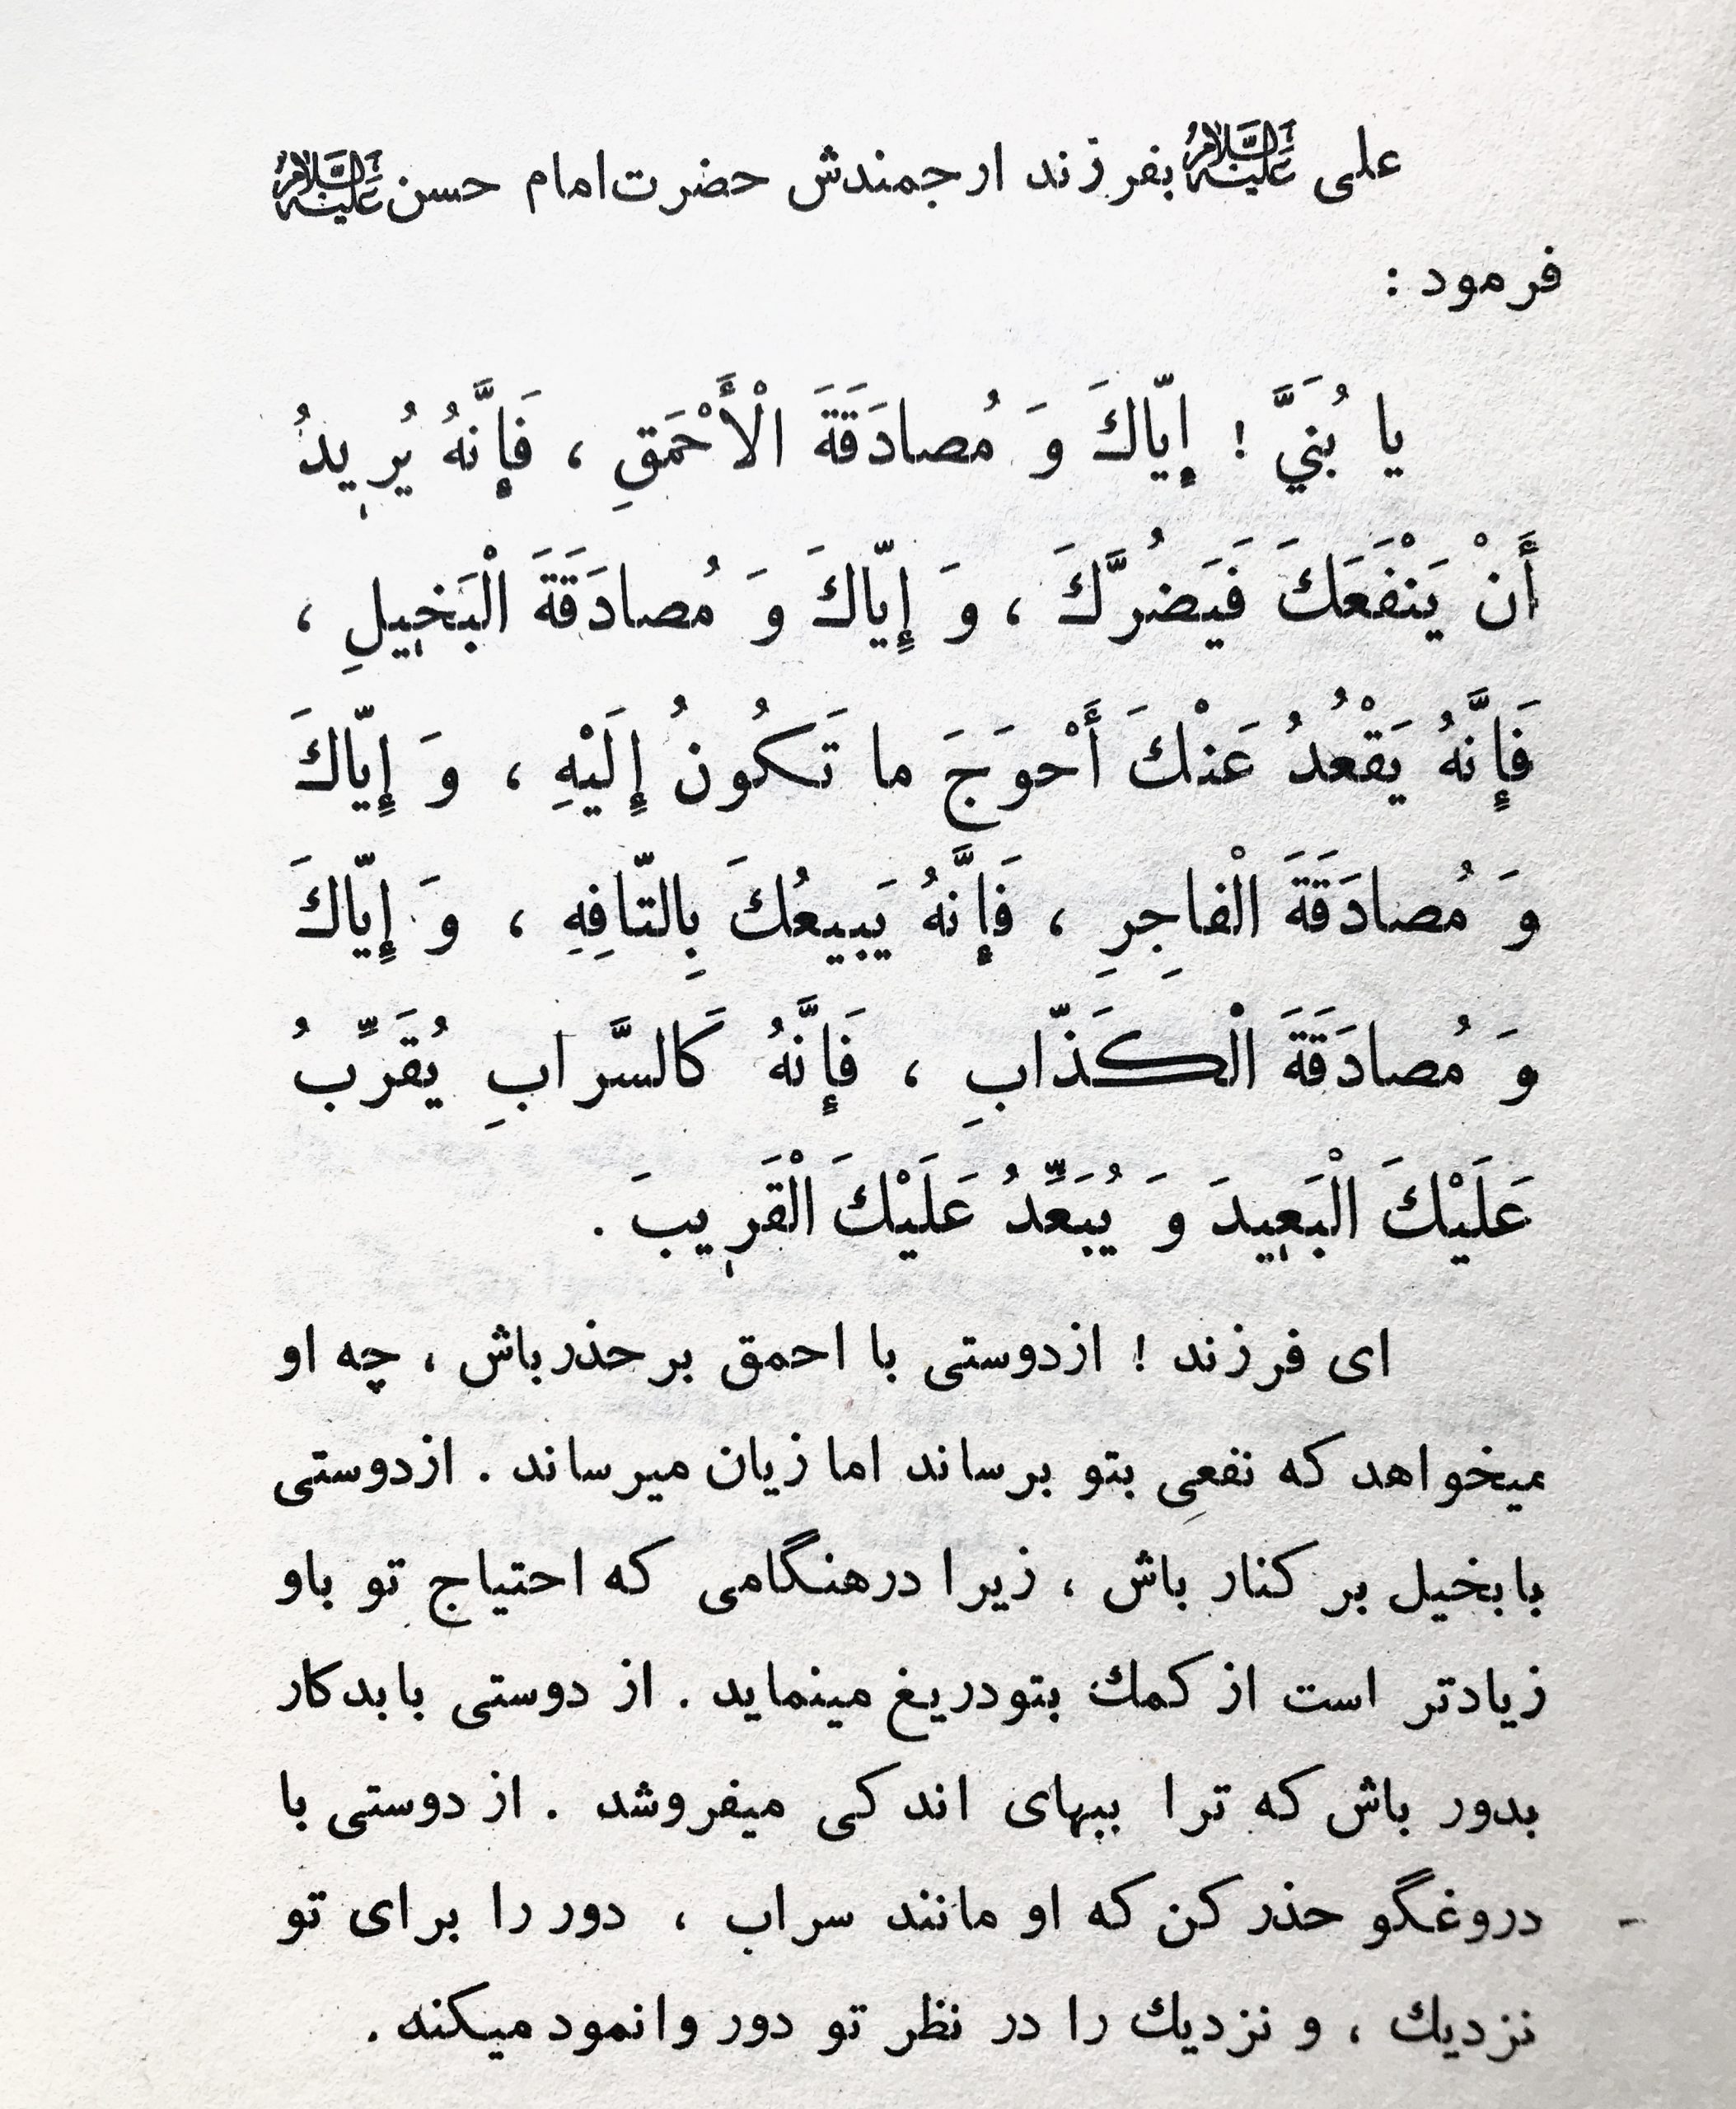 علی علیه‌السلام بفرزند ارجمندش حضرت امام حسن علیه‌السلام
فرمود :
يا بُنَيَّ ! إِيّاكَ وَ مُصادَقَةَ الْأَحْمَقِ ، فَإِنَّهُ يُرِيدُ
أَنْ يَنْفَعَكَ فَيَضُرَّكَ ، وَ إِيّاكَ وَ مُصادَقَةَ الْبَخِيلِ ،
فَإِنَّهُ يَقْعُدُ عَنْكَ أَحْوَجَ ما تَكُونُ إِلَيْهِ ، وَ إِيّاكَ
وَ مُصادَقَةَ الْفاجِرِ ، فَإِنَّهُ يَبيعُكَ بِالتّافِهِ ، وَ إِيّاكَ
وَ مُصادَقَةَ الْكَذّابِ ، فَإِنَّهُ كَالسَّرابِ يُقَرِّبُ
عَلَيْكَ الْبَعِيدَ وَ يُبَعِّدُ عَلَيْكَ الْقَرِيبَ .
ای فرزند ! ازدوستی با احمق برحذرباش ، چه او
میخواهد که نفعِی بتو برساند اما زیان میرساند . ازدوستی
بابخیل بر کنار باش ، زیرا درهنگامی که احتیاج تو باو
زیادتر است از کمك بتودریغ مینماید . از دوستی بابدکار
بدور باش که ترا ببهای اندکی میفروشد . از دوستی با
دروغگو حذر کن که او مانند سراب ، دور را برای تو
نزدیك ، و نزدیك را در نظر تو دور وانمود میکنه .